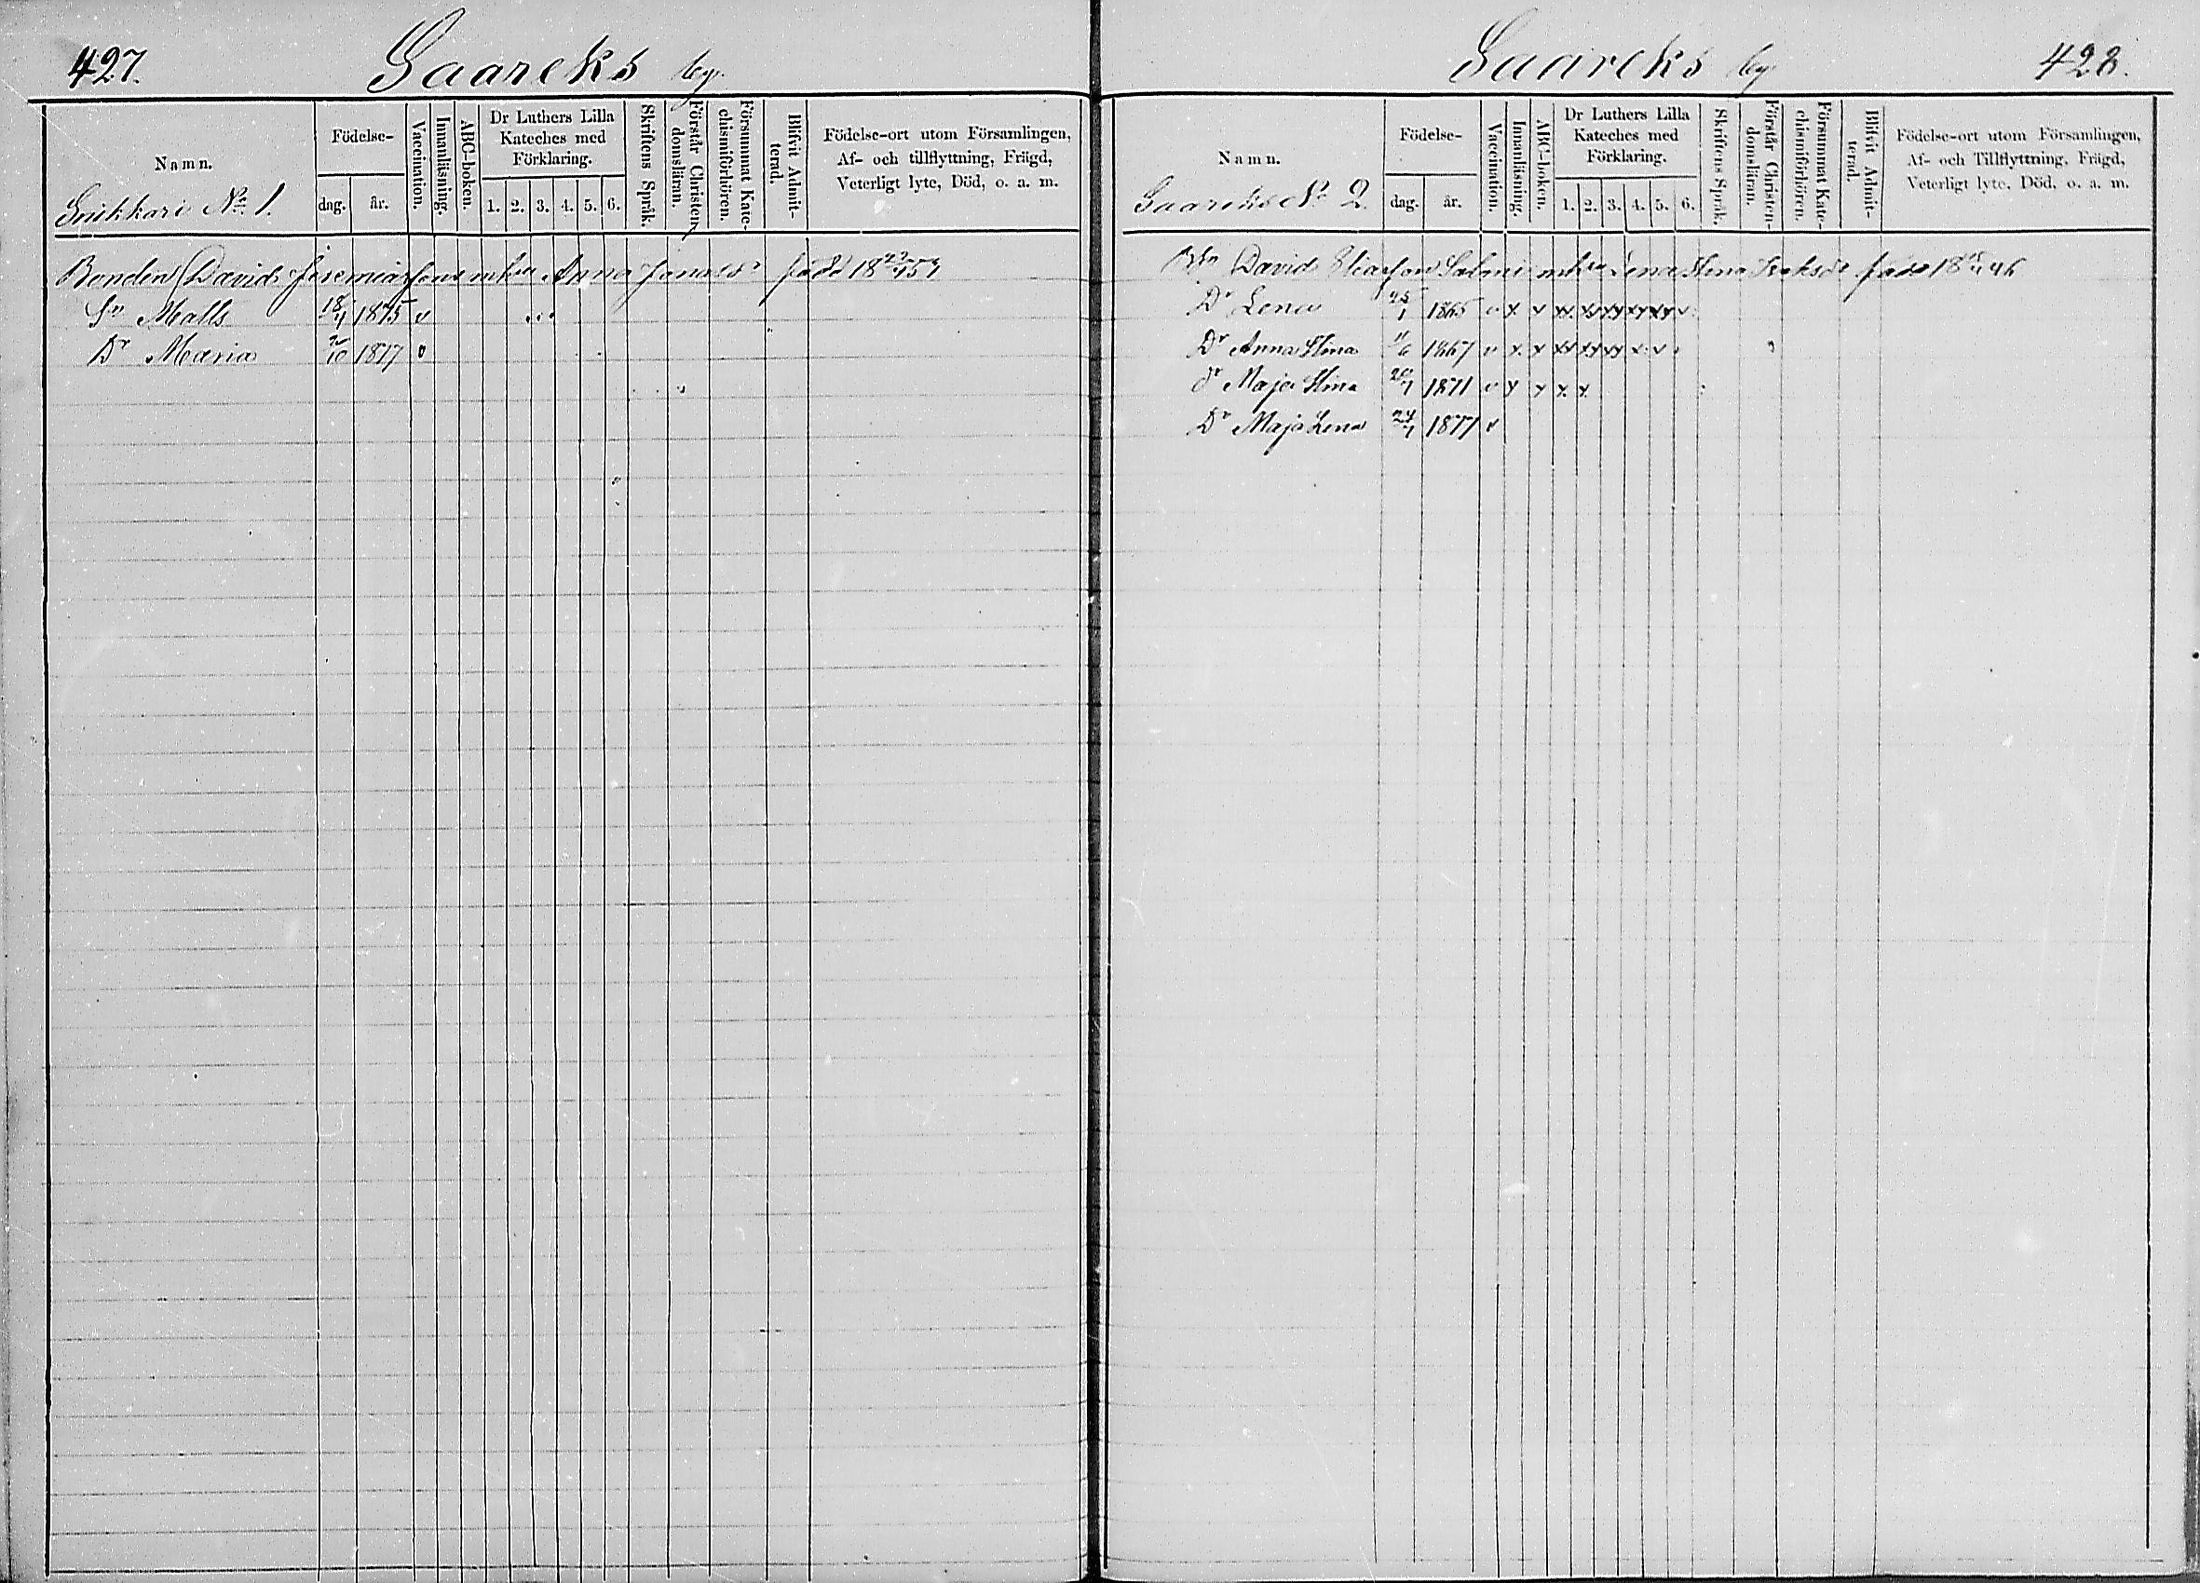 427.
Saareks by.
Namn.
Födelse-
dag. år.
Vaccination.
Innanläsning.
ABC-boken.
Dr Luthers Lilla Kateches med Förklaring.
1. 2. 3. 4. 5. 6.
Skriftens Språk.
Förstår Christendomsläran.
Försummat Katechismiförhören.
Blifvit Admitterad.
Födelse-ort utom Församlingen, Af- och tillflyttning, Frägd, Veterligt lyte, Död, o. a. m.
Snikkari No 1.
Bonden David Jeremiasson m hu Anna född 18
Sn Matts 18/1 1875 v
Dr Maria /10 1877 v
Saareks by
428.
Namn.
Födelse-
dag. år.
Vaccination.
Innanläsning.
ABC-boken.
Dr Luthers Lilla Kateches med Förklaring.
1. 2. 3. 4. 5. 6.
Skriftens Språk.
Förstår Christendomsläran.
Försummat Katechismiförhören.
Blifvit Admitterad.
Födelse-ort utom Församlingen, Af- och Tillflyttning, Frägd, Veterligt lyte, Död, o. a. m.
Saareks No 2.
David Eliasson Salmi m hu Lena Stina född 18
Dr Lena 25/1 1865 v x x xx xx xx xx xx v
Dr Anna Stina 11/6 1867 v x x xx xx xx x v
Dr Maja Stina 20/1 1871 v x x x x
Dr Maja Lena 24/1 1877 v